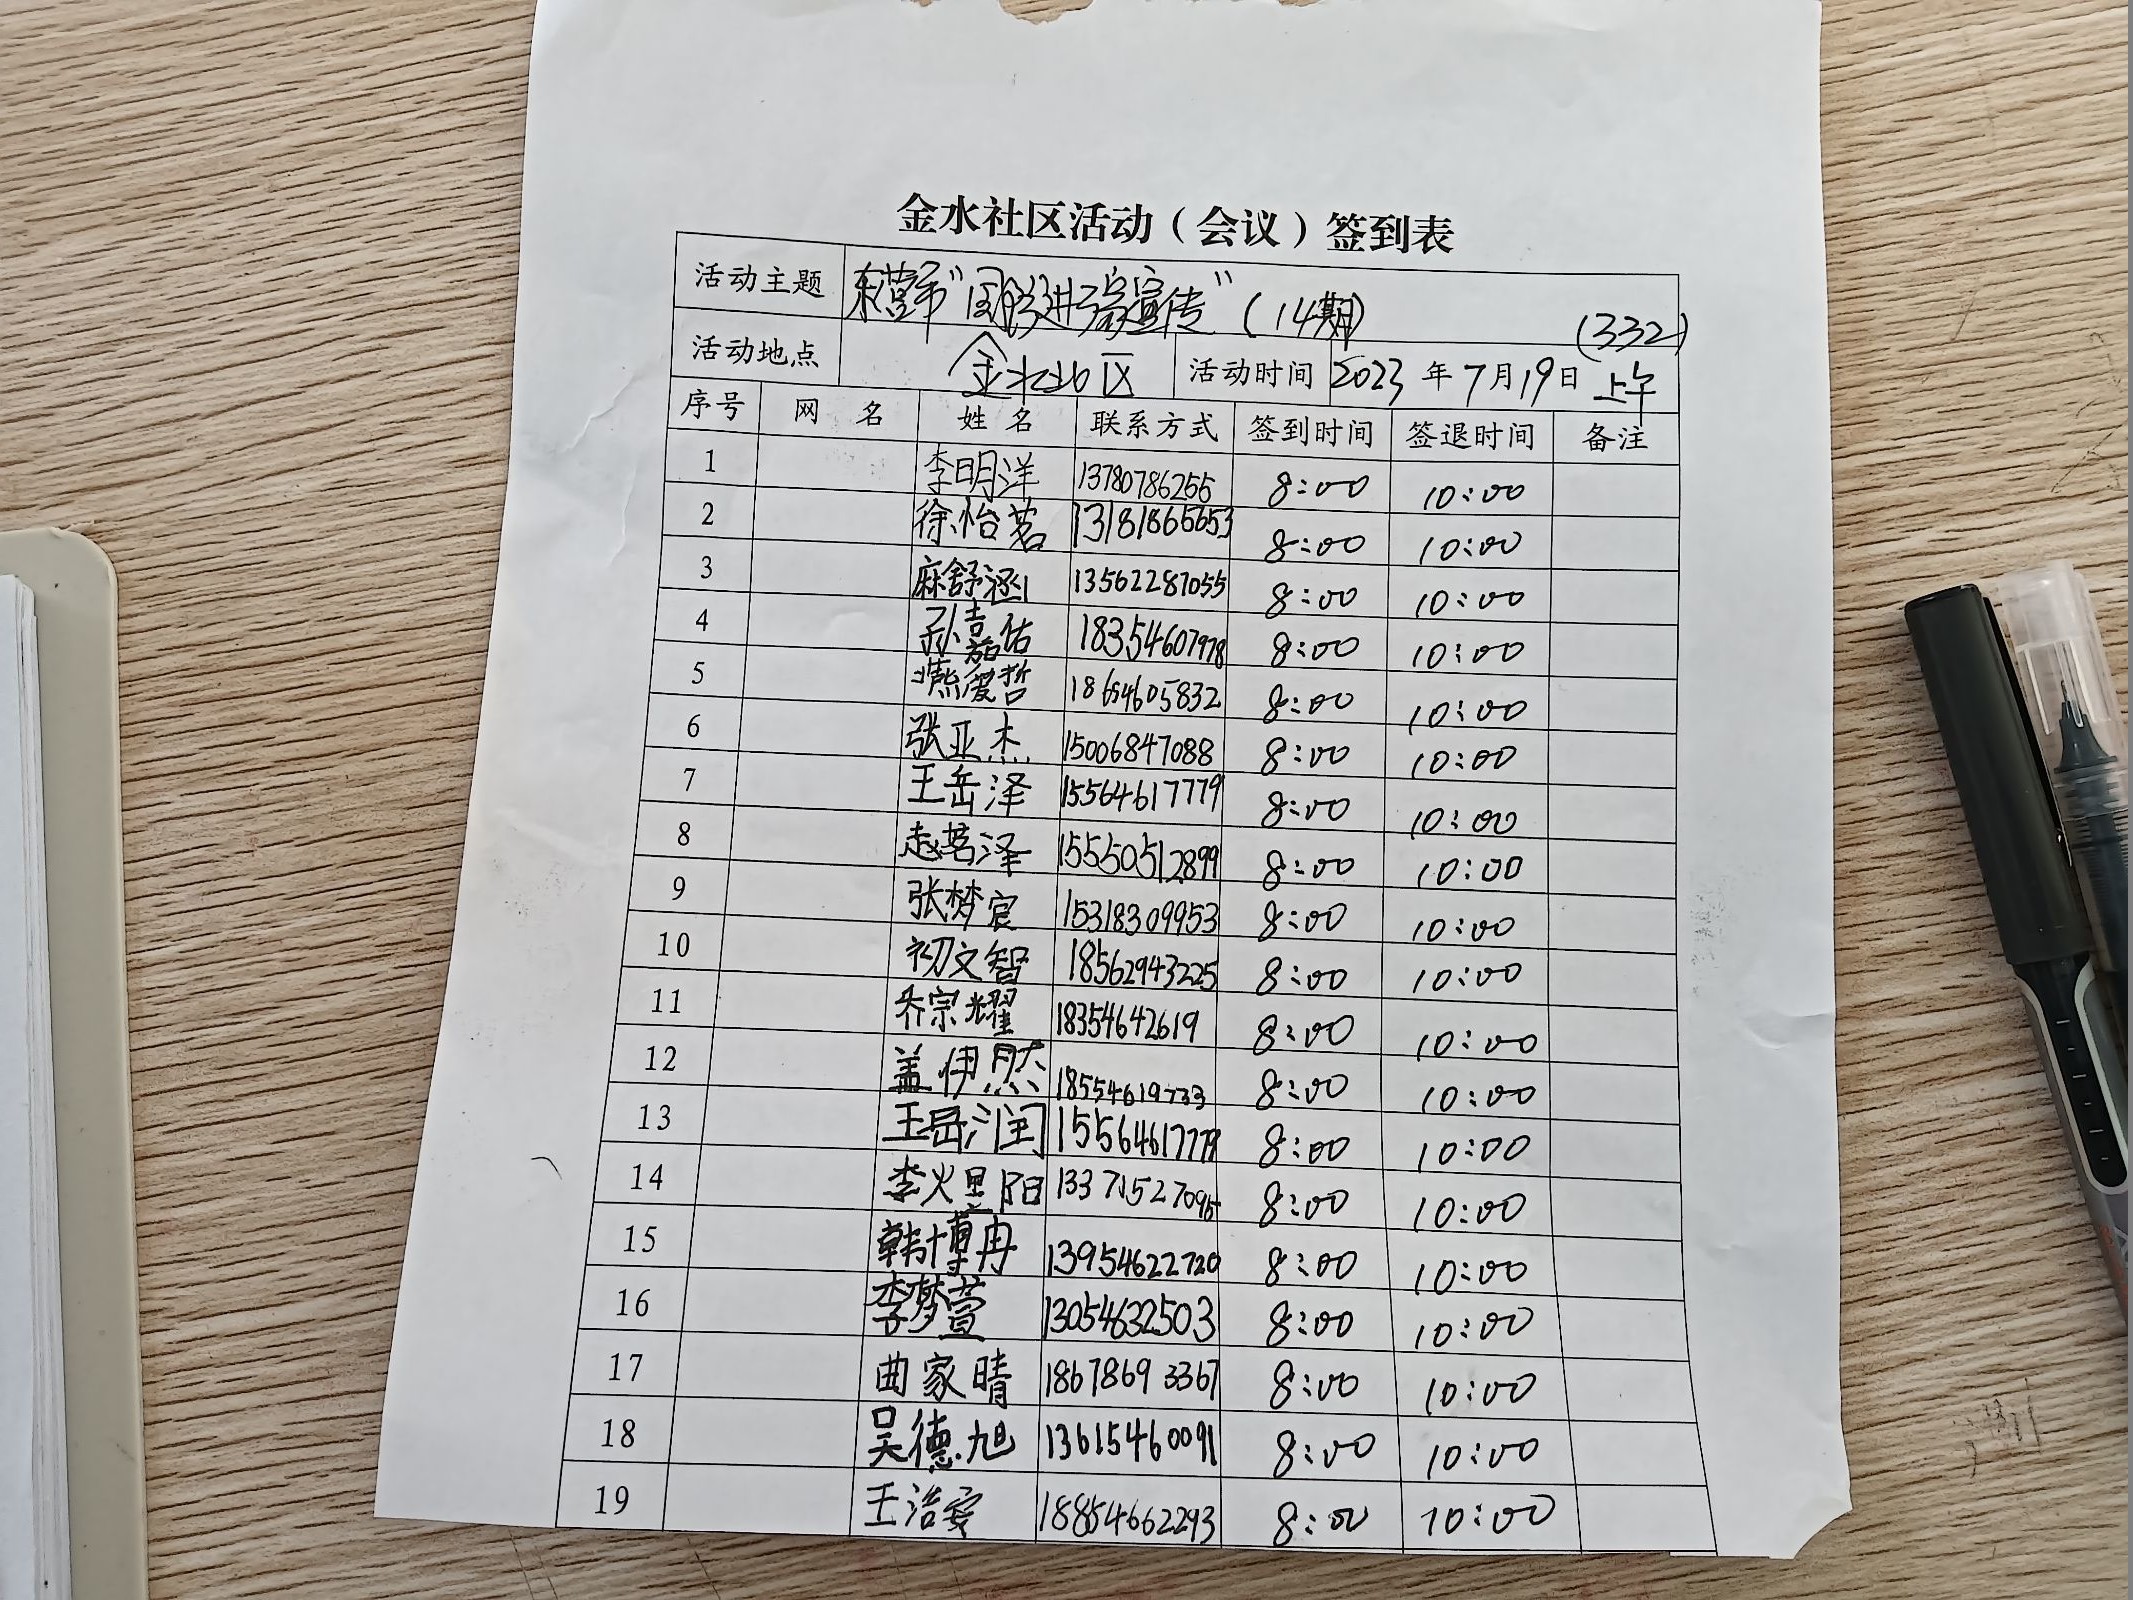 金水社区活动（会议）签到表
活动主题 东营市"国防进家宣传"（14期） (332)
活动地点 金水社区 活动时间 2023年7月19日 上午
序号 网 名 姓 名 联系方式 签到时间 签退时间 备注
1 李明洋 13780786255 8:00 10:00
2 徐怡茗 13181865653 8:00 10:00
3 麻舒涵 13562287055 8:00 10:00
4 孙嘉佑 18354607978 8:00 10:00
5 哲 18654605832 8:00 10:00
6 张亚杰 15006847088 8:00 10:00
7 王岳泽 15564617779 8:00 10:00
8 赵茗泽 15550512899 8:00 10:00
9 张梦宸 15318309953 8:00 10:00
10 初文智 18562943225 8:00 10:00
11 乔宗耀 18354642619 8:00 10:00
12 盖伊然 18554619733 8:00 10:00
13 王岳润 15564617779 8:00 10:00
14 李煜阳 13371527095 8:00 10:00
15 韩博冉 13954622720 8:00 10:00
16 李梦萱 13054632503 8:00 10:00
17 曲家晴 18678693367 8:00 10:00
18 吴德旭 13615460091 8:00 10:00
19 王浩安 18854662293 8:00 10:00